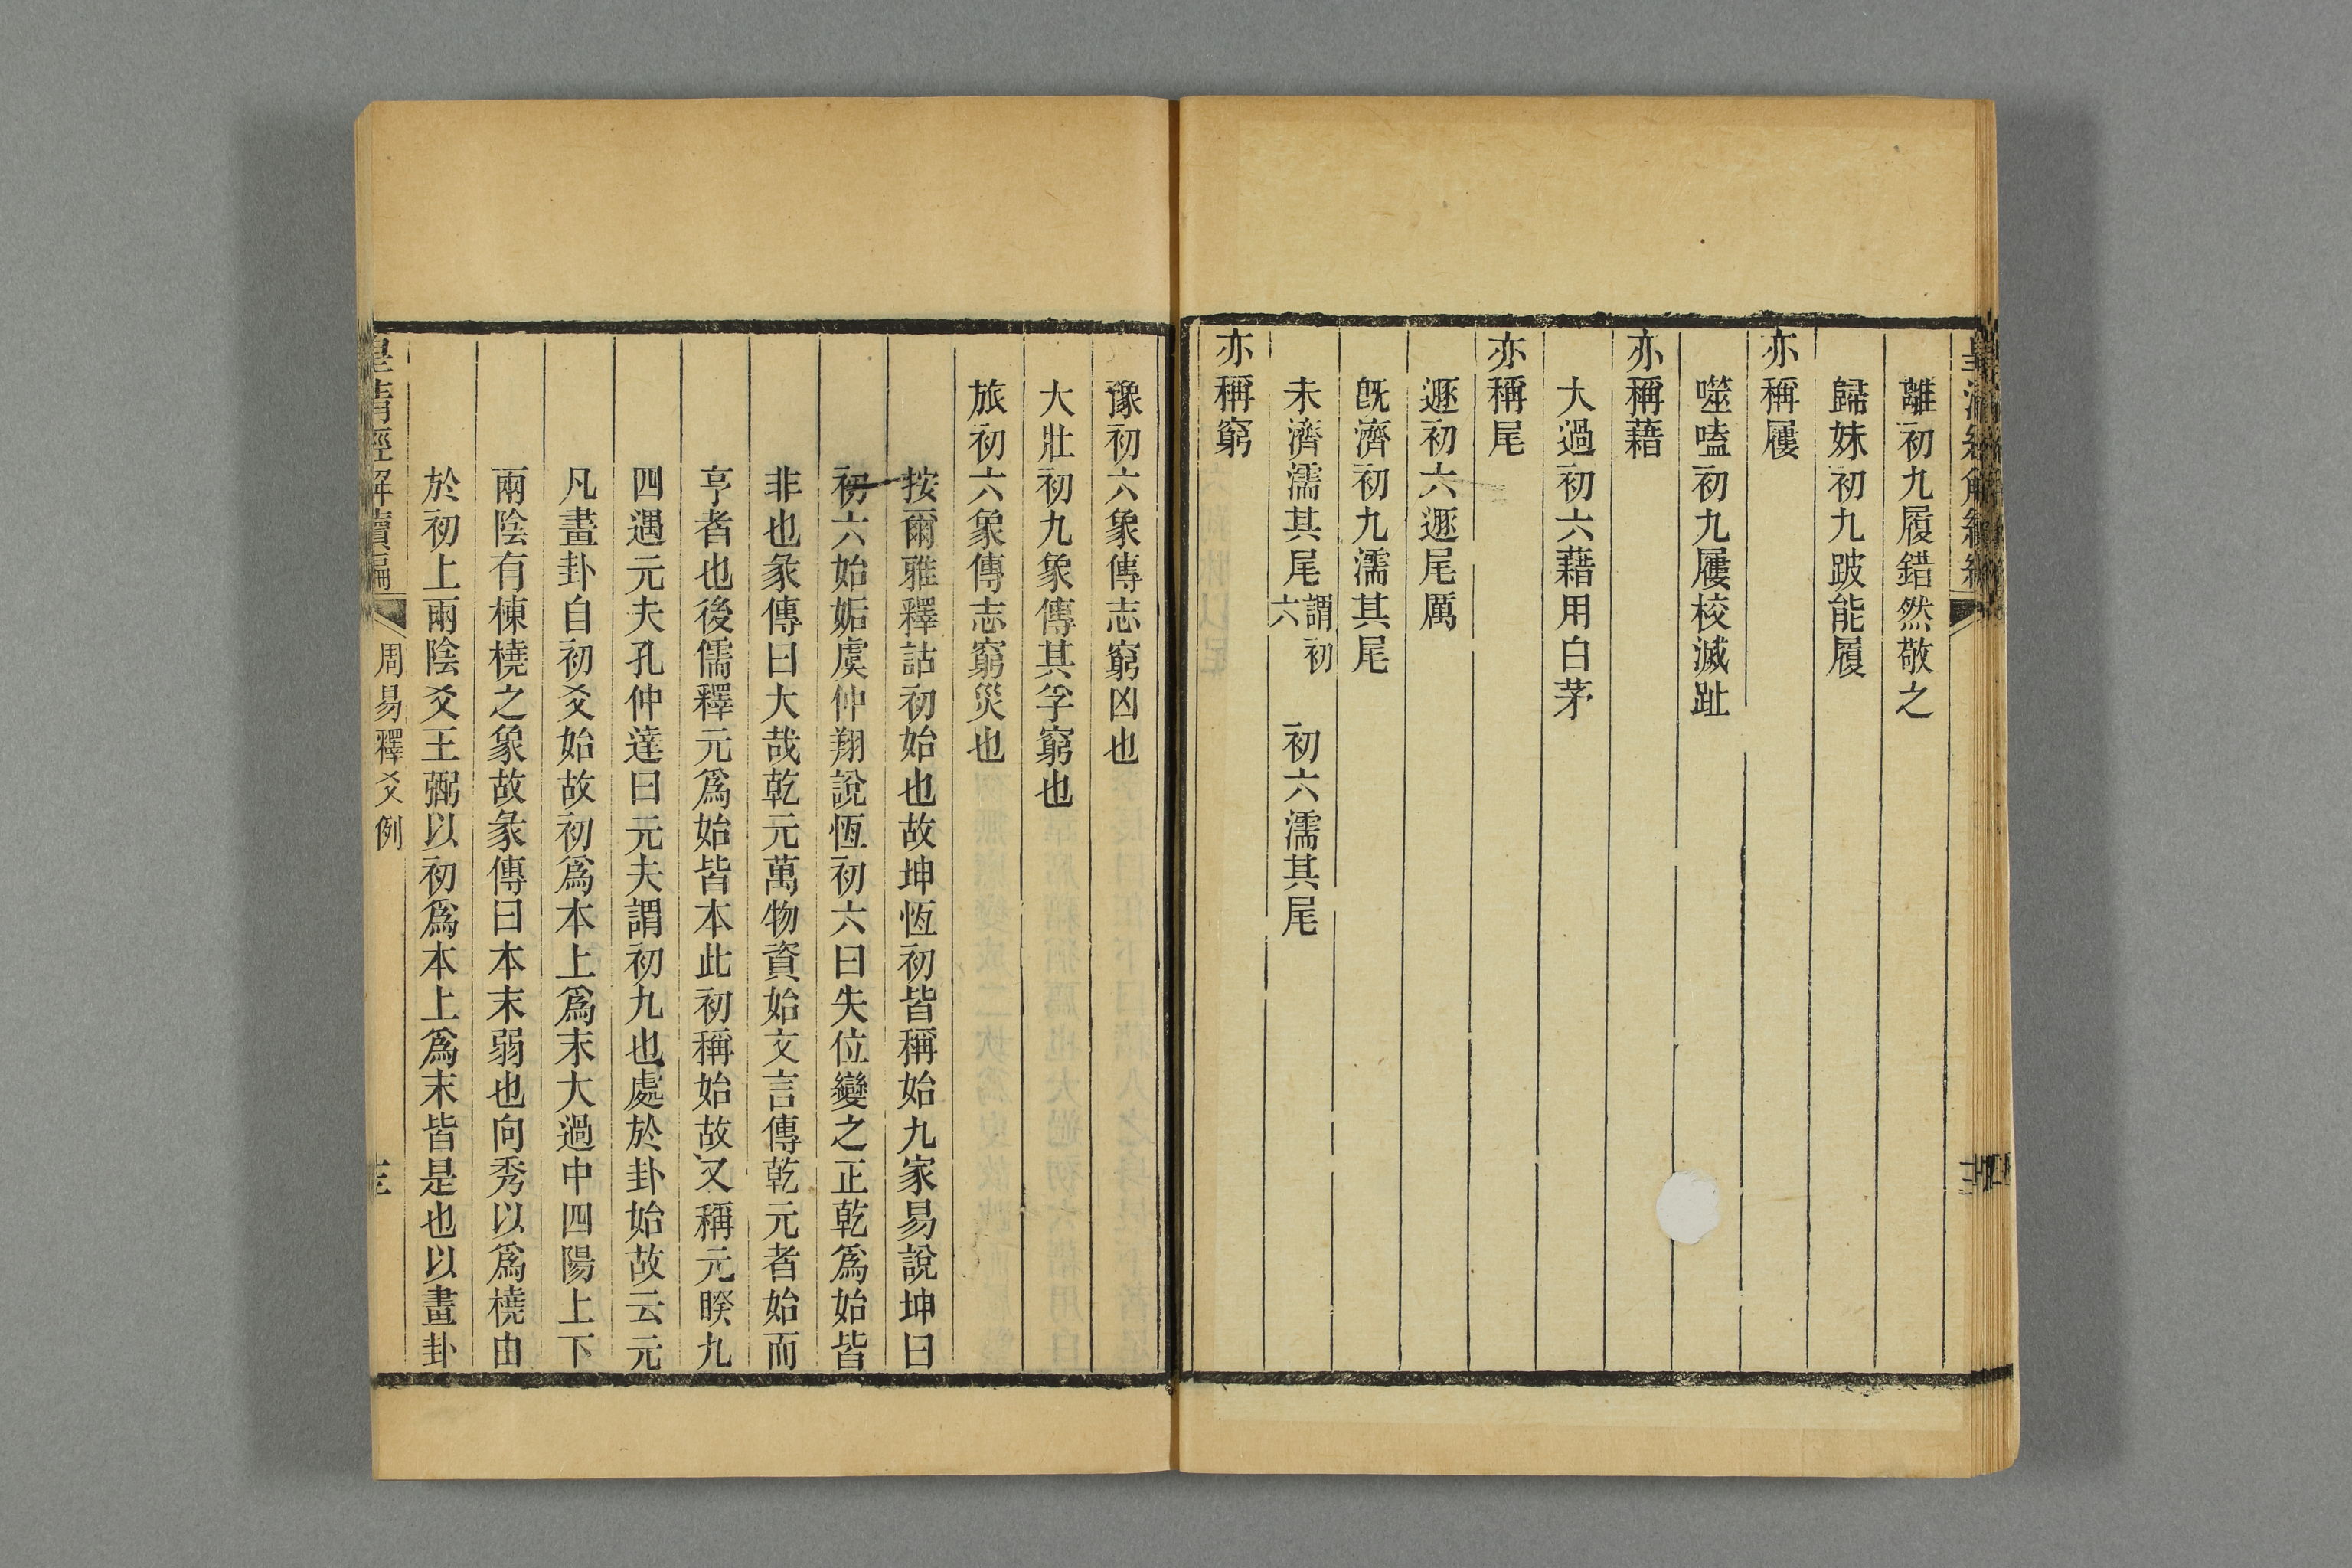 離初九履錯然敬之
歸妹初九跛能履
亦稱屨
噬嗑初九屨校滅趾
亦稱藉
大過初六藉用白茅
亦稱尾
遯初六遯尾厲
旣濟初九濡其尾
未濟濡其尾謂初六 初六濡其尾
亦稱窮
豫初六象傳志窮凶也
大壯初九象傳其孚窮也
旅初六象傳志窮災也
按爾雅釋詁初始也故坤恆初皆稱始九家易說坤曰
初六始姤虞仲翔說恆初六曰失位變之正乾爲始皆
非也彖傳曰大哉乾元萬物資始文言傳乾元者始而
亨者也後儒釋元爲始皆本此初稱始故又稱元睽九
四遇元夫孔仲達曰元夫謂初九也處於卦始故云元
凡畫卦自初爻始故初爲本上爲末大過中四陽上下
兩陰有棟橈之象故彖傳曰本末弱也向秀以爲橈由
於初上兩陰爻王弼以初爲本上爲末皆是也以畫卦
皇清經解續編
周易釋爻例